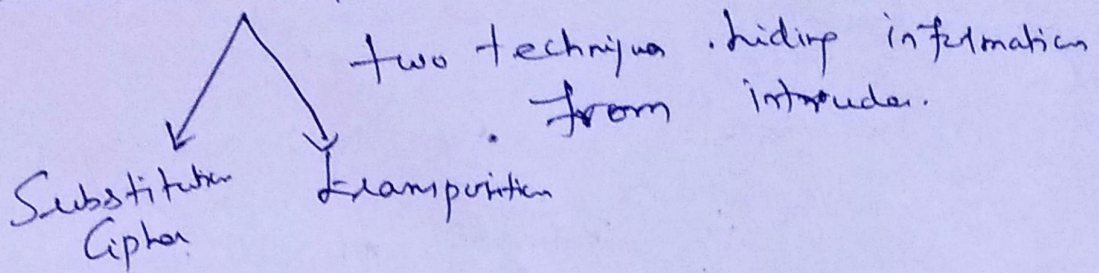 two technique hiding information
from intruder.
Substitution transposition
Cipher